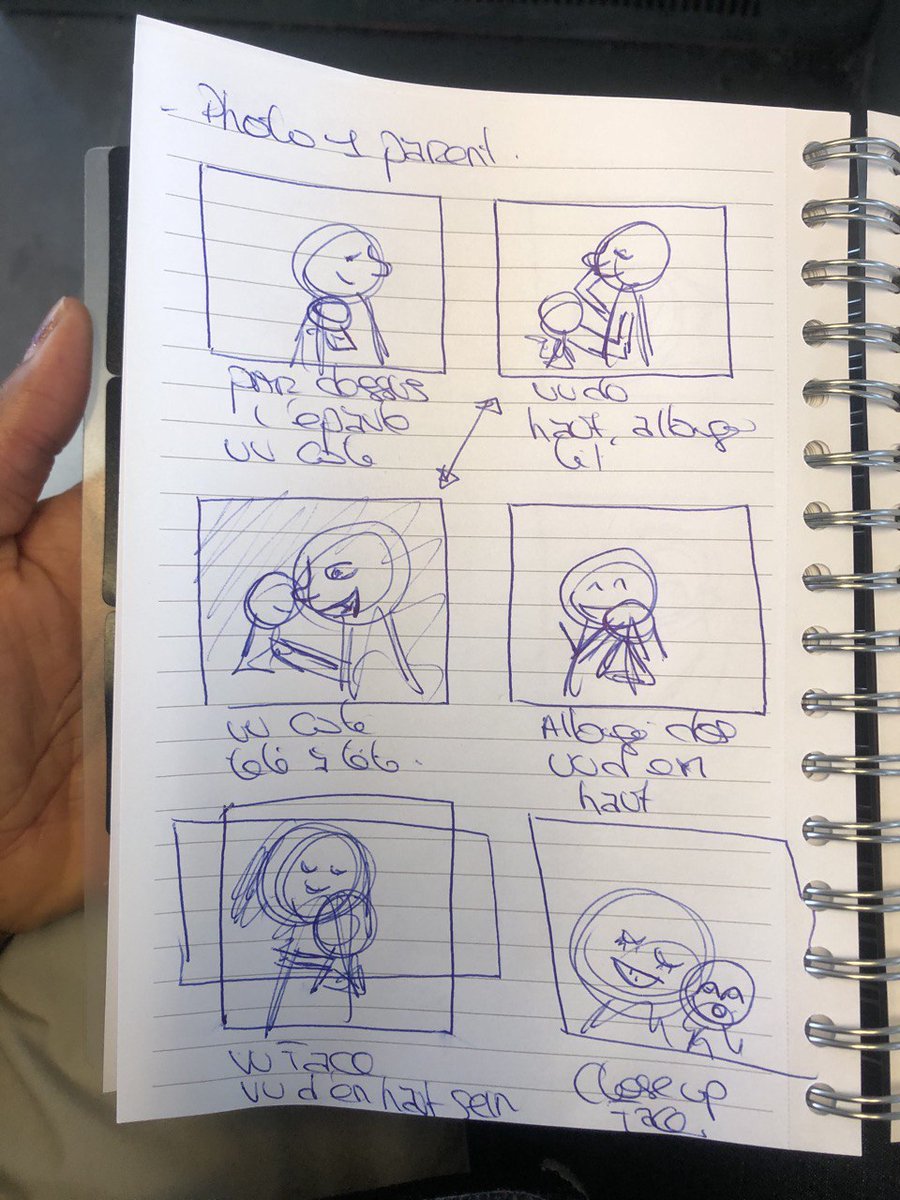 - Photo 1 parent.
par dessus
l'épaule
vu coté
vu de
haut, allongé
lit
vu coté
tété à tété.
Allongé dos
vu d en
haut
vu face
vu d'en haut sein
Close up
face.